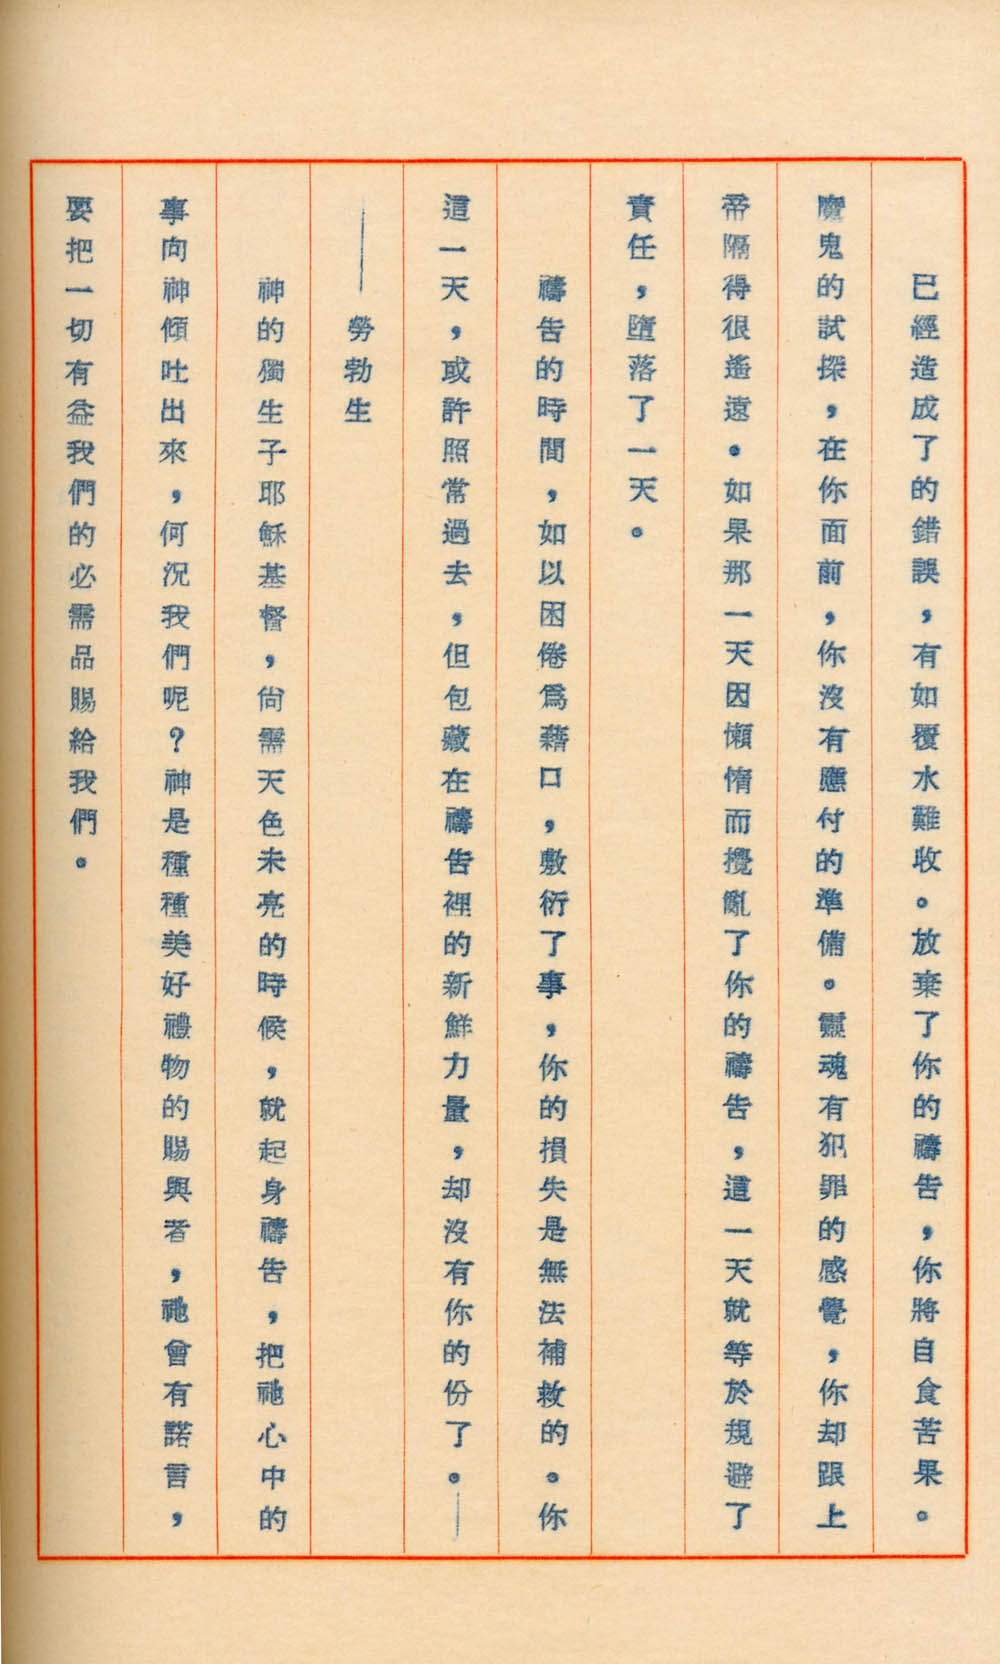 已經造成了的錯誤，有如覆水難收。放棄了你的禱告，你將自食苦果。
魔鬼的試探，在你面前，你沒有應付的準備。靈魂有犯罪的感覺，你却跟上
帝隔得很遙遠。如果那一天因懶惰而攪亂了你的禱告，這一天就等於規避了
責任，墮落了一天。
禱告的時間，如以困倦爲藉口，敷衍了事，你的損失是無法補救的。你
這一天，或許照常過去，但包藏在禱告裡的新鮮力量，却沒有你的份了。—
—勞勃生
神的獨生子耶穌基督，尙需天色未亮的時候，就起身禱告，把祂心中的
事向神傾吐出來，何況我們呢？神是種種美好禮物的賜與者，祂曾有諾言，
要把一切有益我們的必需品賜給我們。